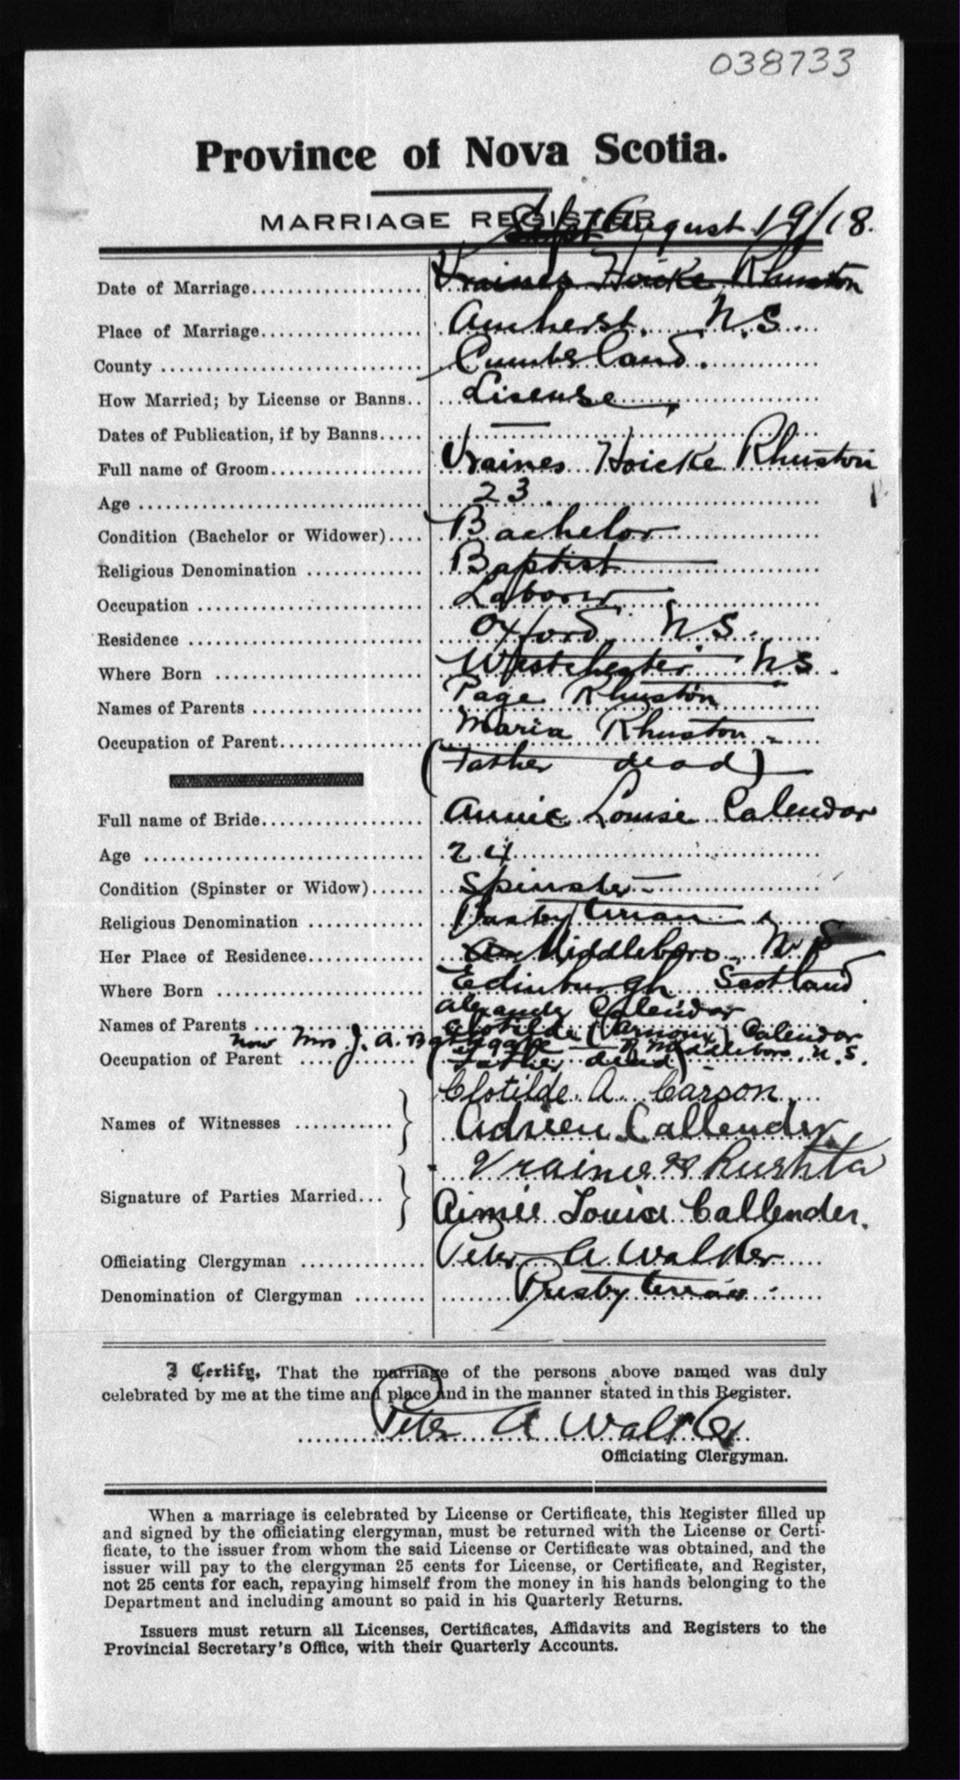 038733
Province of Nova Scotia.
MARRIAGE REGISTER
Sept August 19/18.
Date of Marriage.................... Vraines Hoicke Rhuston
Place of Marriage................... Amherst. N.S.
County .............................. Cumberland.
How Married; by License or Banns.. Lisense
Dates of Publication, if by Banns..... —
Full name of Groom.................. Vraines Hoicke Rhuston
Age .................................. 23.
Condition (Bachelor or Widower).... Bachelor
Religious Denomination .............. Baptist
Occupation .......................... Laborer
Residence ........................... Oxford N S.
Where Born ......................... Westchester N S.
Names of Parents .................... Page Rhuston
Occupation of Parent................. Maria Rhuston
(Father dead)
Full name of Bride................... Annie Louise Calendar
Age .................................. 24
Condition (Spinster or Widow)...... Spinster
Religious Denomination ..............
Her Place of Residence............... Middleboro N. S
Where Born ......................... Edinburgh Scotland
Names of Parents .................... Alexander Calendar
Clotilde (Arnoux) Calendar
now Mrs J. A. Middleboro N.S.
Occupation of Parent ............... (Father dead)
Names of Witnesses ........... } Clotilde A. Carson
Adrien Callender
Signature of Parties Married... } Vraine H Rushta
Aimée Louise Callender.
Officiating Clergyman ............... Peter A Walker
Denomination of Clergyman ........ Presbyterian
I Certify, That the marriage of the persons above named was duly
celebrated by me at the time and place and in the manner stated in this Register.
Peter A Walker
Officiating Clergyman.
When a marriage is celebrated by License or Certificate, this Register filled up
and signed by the officiating clergyman, must be returned with the License or Certi-
ficate, to the issuer from whom the said License or Certificate was obtained, and the
issuer will pay to the clergyman 25 cents for License, or Certificate, and Register,
not 25 cents for each, repaying himself from the money in his hands belonging to the
Department and including amount so paid in his Quarterly Returns.
Issuers must return all Licenses, Certificates, Affidavits and Registers to the
Provincial Secretary's Office, with their Quarterly Accounts.